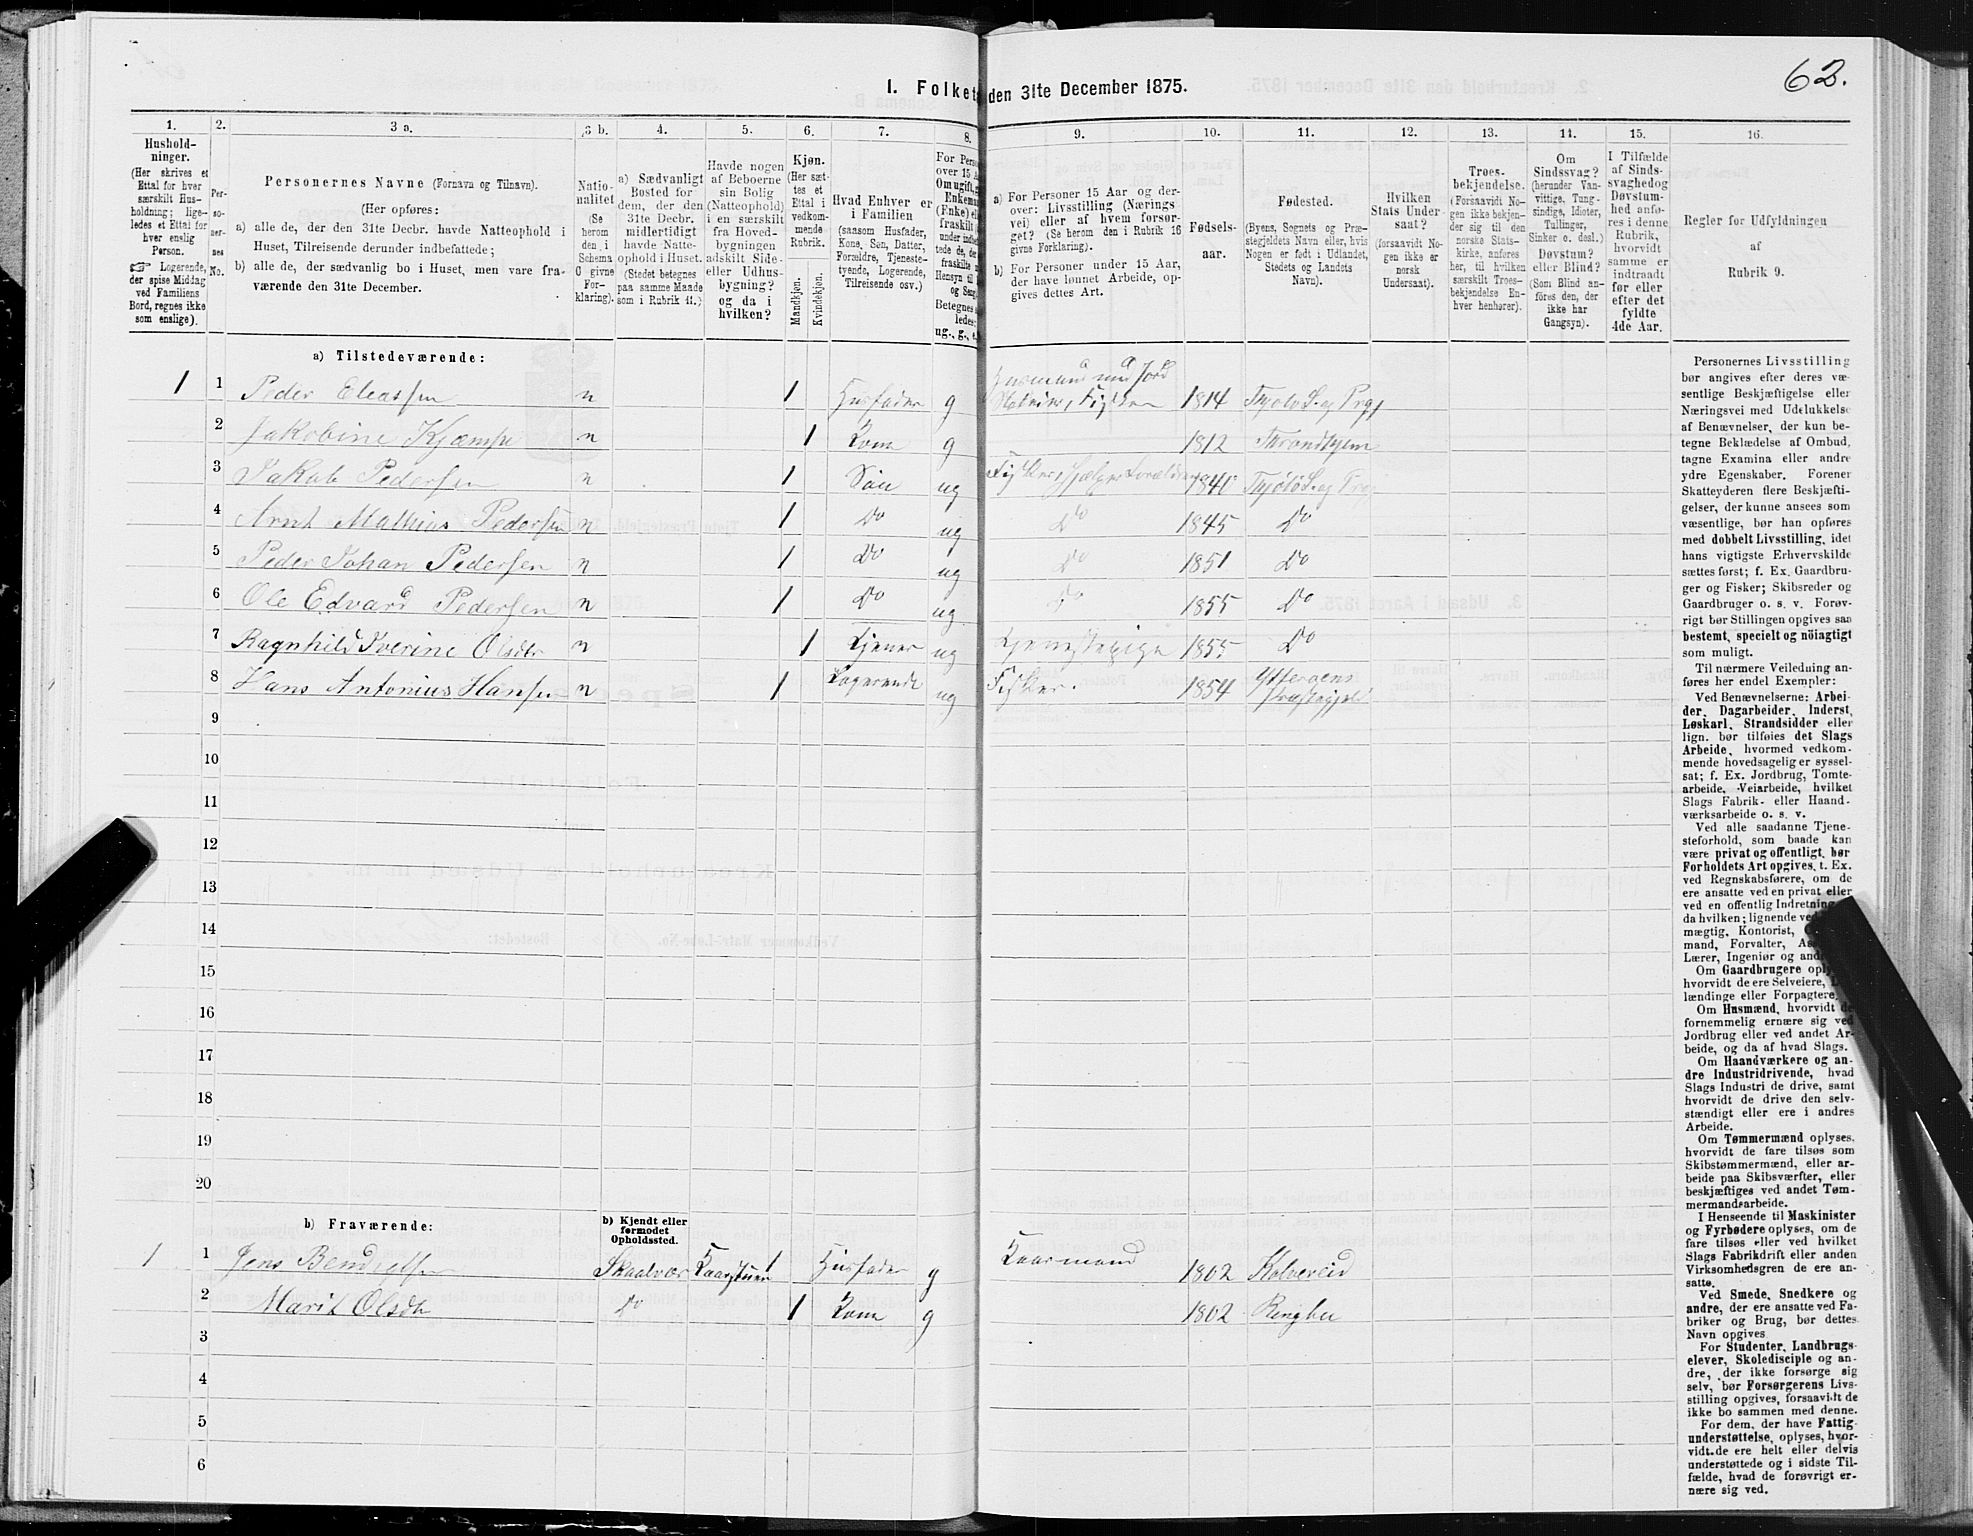 62.
1. Folket den 31te December 1875.
1. 2. 3 a. 3 b. 4. 5. 6. 7. 8. 9. 10. 11. 12. 13. 11. 15. 16.
Hushold-
ninger.
(Her skrives et
Ettal for hver
særskilt Hus-
holdning; lige-
ledes et Ettal for
hver enslig
Person.
☞ Logerende,
der spise Middag
ved Familiens
Bord, regnes ikke
som enslige).
Per-
so-
ner-
nes
No.
Personernes Navne (Fornavn og Tilnavn).
(Her opføres:
a) alle de, der den 31te Decbr. havde Natteophold i
Huset, Tilreisende derunder indbefattede;
b) alle de, der sædvanlig bo i Huset, men vare fra-
værende den 31te December.
Natio-
nalitet
(Se
herom
den i
Schema
C givne
For-
klaring).
a) Sædvanligt
Bosted for
dem, der den
31te Decbr.
midlertidigt
havde Natte-
ophold i Huset.
(Stedet betegnes
paa samme Maade
som i Rubrik 11.)
Havde nogen
af Beboerne
sin Bolig
(Natteophold)
i en særskilt
fra Hoved-
bygningen
adskilt Side-
eller Udhus-
bygning?
og da i
hvilken?
Kjøn.
(Her sæt-
tes et
Ettal i
vedkom-
mende
Rubrik.
Mandkjøn.
Kvindekjøn.
Hvad Enhver er
i Familien
(saasom Husfader,
Kone, Søn, Datter,
Forældre, Tjeneste-
tyende, Logerende,
Tilreisende osv.)
For Pers
over 15 A
Om ugift,
Enkema
(Enke) el
fraskilt
under indbe
tede de, de
fraskilte
Hensyn til
og Seng
Betegnes
ledes:
ug., g., e.
a) For Personer 15 Aar og der-
over: Livsstilling (Nærings-
vei) eller af hvem forsør-
get? (Se herom den i Rubrik 16
givne Forklaring).
b) For Personer under 15 Aar,
der have lønnet Arbeide, op-
gives dettes Art.
Fødsels-
aar.
Fødested.
(Byens, Sognets og Præ-
stegjeldets Navn eller, hvis
Nogen er født i Udlandet,
Stedets og Landets
Navn).
Hvilken
Stats Under-
saat?
(forsaavidt No-
gen ikke er
norsk
Undersaat).
Troes-
bekjendelse.
(Forsaavidt No-
gen ikke bekjen-
der sig til den
norske Stats-
kirke, anføres
her, til hvilken
særskilt Troes-
bekjendelse En-
hver henhører).
Om
Sindssvag?
(herunder Van-
vittige, Tung-
sindige, Idioter,
Tullinger,
Sinker o. desl.)
Døvstum?
eller Blind?
(Som Blind an-
føres den, der
ikke har
Gangsyn).
I Tilfælde
af Sinds-
svaghed og
Døvstum-
hed anfø-
res i denne
Rubrik,
hvorvidt
samme er
indtraadt
før eller
efter det
fyldte
4de Aar.
Regler for Udfyldningen
af
Rubrik 9.
a) Tilstedeværende:
1 1 Peder Eleassen n 1 Husfader g Husmand med Jord Fisker 1814 Thjøtø S. og Prgj
2 Jakobine Kjæmpe n 1 Kone g 1812 Throndhjem
3 Jakob Pedersen n 1 Søn ug Fisker, hjælper Forældrene 1840 Thjøtø S. og Prgj
4 Arnt Mathius Pedersen n 1 Do ug Do 1845 Do
5 Peder Johan Pedersen n 1 Do ug Do 1851 Do
6 Ole Edvard Pedersen n 1 Do ug Do 1855 Do
7 Ragnhild Iverine Olsdtr n 1 Tjener ug Tjenestepige 1855 Do
8 Hans Antonius Hansen n 1 Logerende ug Fisker. 1854 Ytterøens Præstegjeld
9
10
11
12
13
14
15
16
17
18
19
20
b) Fraværende: b) Kjendt eller
formodet
Opholdssted.
1 1 Jens Bendigtsen Skaalvær 1 Husfader g Kaarmand 1802 Kolvereid
2 Marit Olsdtr Do 1 Kone g 1802 Ringbu
3
4
5
6
Personernes Livsstilling
bør angives efter deres væ-
sentlige Beskjæftigelse eller
Næringsvei med Udelukkelse
af Benævnelser, der kun be-
tegne Beklædelse af Ombud,
tagne Examina eller andre
ydre Egenskaber. Forener
Skatteyderen flere Beskjæfti-
gelser, der kunne ansees som
væsentlige, bør han opføres
med dobbelt Livsstilling, idet
hans vigtigste Erhvervskilde
sættes først; f. Ex. Gaardbru-
ger og Fisker; Skibsreder og
Gaardbruger o. s. v. Forøv-
rigt bør Stillingen opgives saa
bestemt, specielt og nöiagtigt
som muligt.
Til nærmere Veiledning an-
føres her endel Exempler:
Ved Benævnelserne: Arbei-
der, Dagarbeider, Inderst,
Løskarl, Strandsidder eller
lign. bør tilføies det Slags
Arbeide, hvormed vedkom-
mende hovedsagelig er syssel-
sat; f. Ex. Jordbrug, Tomte-
arbeide, Veiarbeide, hvilket
Slags Fabrik- eller Haand-
værksarbeide o. s. v.
Ved alle saadanne Tjene-
steforhold, som baade kan
være privat og offentligt, bør
Forholdets Art opgives, t. Ex.
ved Regnskabsførere, om de
ere ansatte ved en privat eller
ved en offentlig Indretning,
da hvilken; lignende ved
mægtig, Kontorist,
mand, Forvalter, As
Lærer, Ingeniør og and
Om Gaardbrugere oply
hvorvidt de ere Selveiere,
lændinge eller Forpagtere.
Om Husmænd, hvorvidt de
fornemmelig ernære sig ved
Jordbrug eller ved andet Ar-
beide, og da af hvad Slags.
Om Haandværkere og an-
dre Industridrivende, hvad
Slags Industri de drive, samt
hvorvidt de drive den selv-
stændigt eller ere i andres
Arbeide.
Om Tømmermænd oplyses,
hvorvidt de fare tilsøs som
Skibstømmermænd, eller ar-
beide paa Skibsværfter, eller
beskjæftiges ved andet Tøm-
mermandsarbeide.
I Henseende til Maskinister
og Fyrbødere oplyses, om de
fare tilsøs eller ved hvilket
Slags Fabrikdrift eller anden
Virksomhedsgren de ere an-
satte.
Ved Smede, Snedkere og
andre, der ere ansatte ved Fa-
briker og Brug, bør dettes
Navn opgives
For Studenter, Landbrugs-
elever, Skoledisciple og an-
dre, der ikke forsørge sig
selv, bør Forsørgerens Livs-
stilling opgives, forsaavidt de
ikke bo sammen med denne.
For dem, der have Fattig-
understøttelse, oplyses, hvor-
vidt de ere helt eller delvis
understøttede og i sidste Til-
fælde, hvad de forøvrigt er-
nære sig ved.